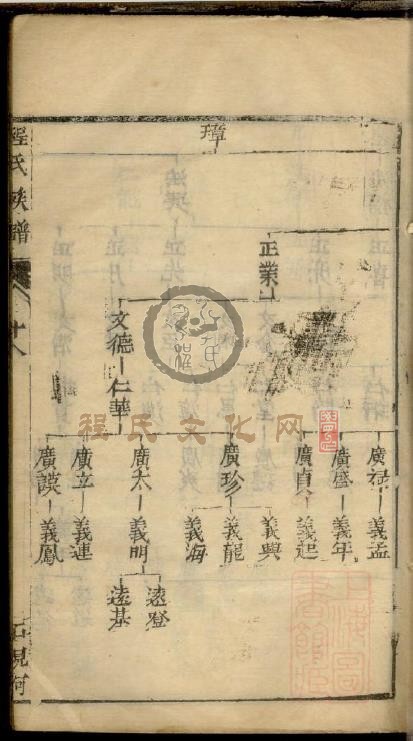 璋
正業
文德 仁華
廣祿 義孟
廣盛 義年
廣貞 義起
廣珍 義興
義龍
義海
廣太 義明
遠登
遠基
廣立 義連
廣謨 義鳳
程氏族譜
十八
石硯何
程氏文化网